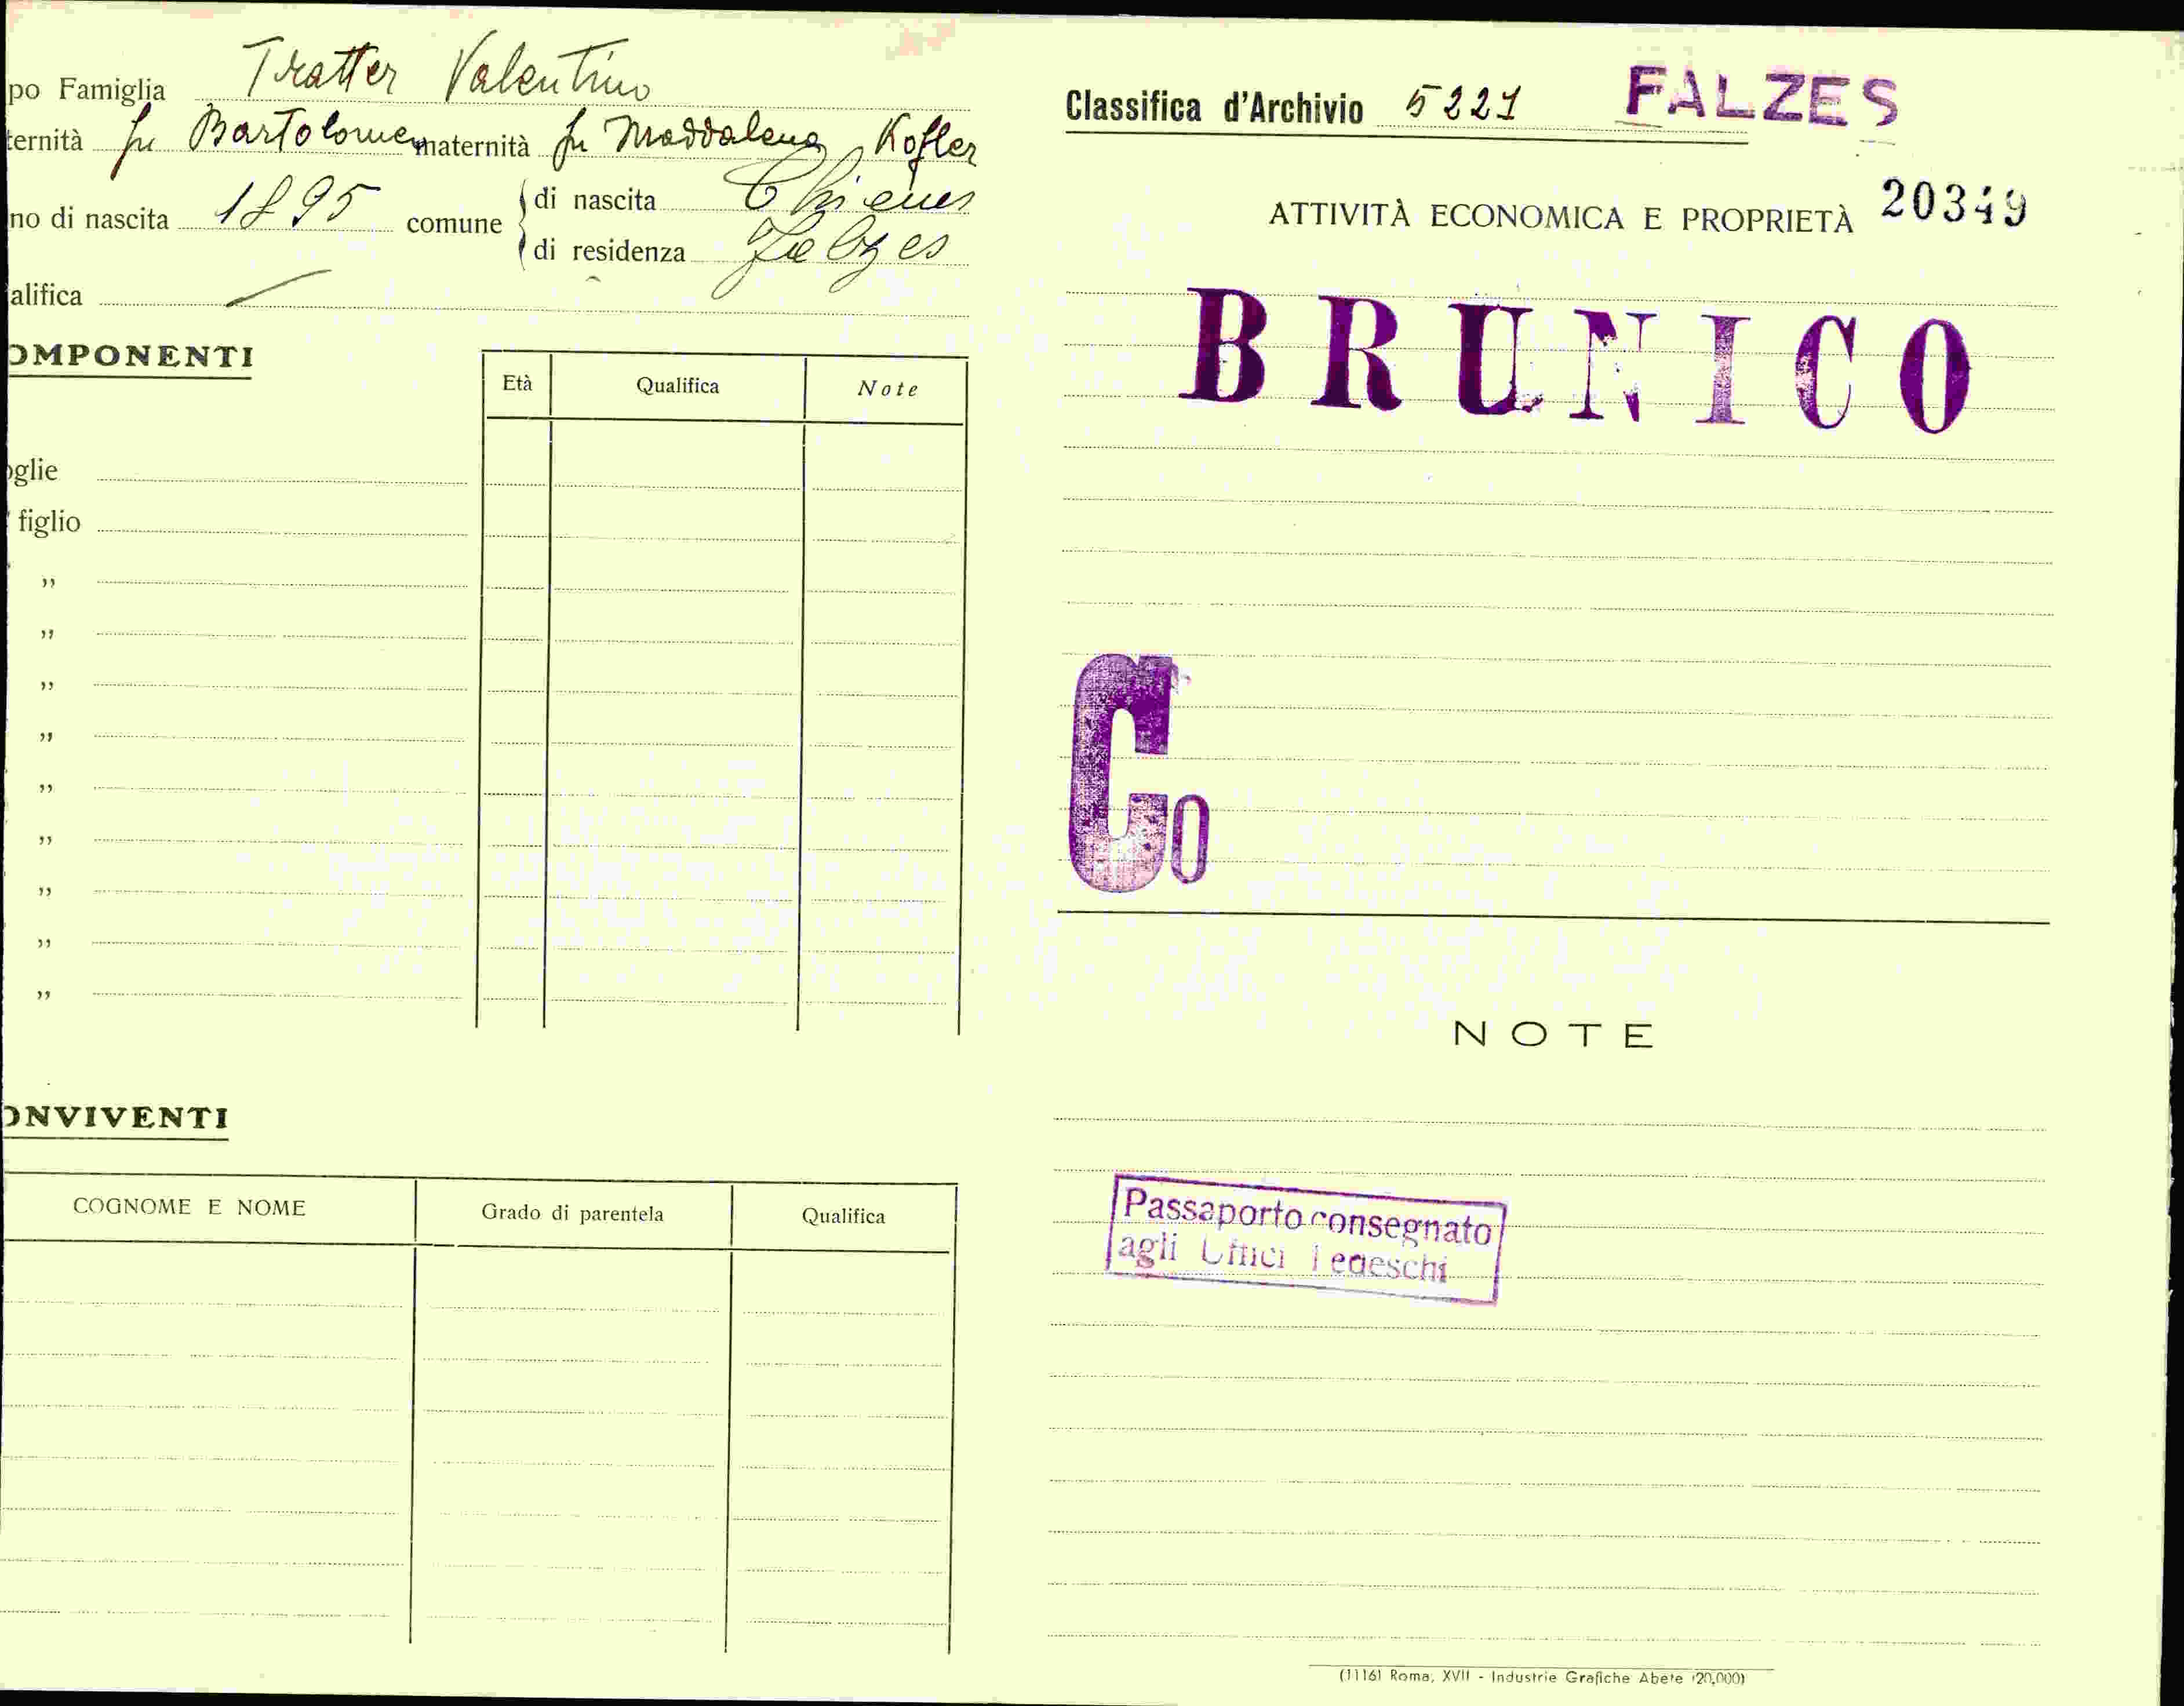 po Famiglia Tratter Valentino
ternità fu Bartolomeo maternità fu Maddalena Kofler
no di nascita 1895 comune
di nascita Chienes
di residenza Falzes
alifica
OMPONENTI
Età Qualifica Note
oglie
figlio
"
"
"
"
"
"
"
"
"
ONVIVENTI
COGNOME E NOME Grado di parentela Qualifica
Classifica d'Archivio 5221 FALZES
ATTIVITÀ ECONOMICA E PROPRIETÀ 20349
BRUNICO
Co
NOTE
Passaporto consegnato
agli Uffici Tedeschi
(1116) Roma, XVII - Industrie Grafiche Abete (20,000)